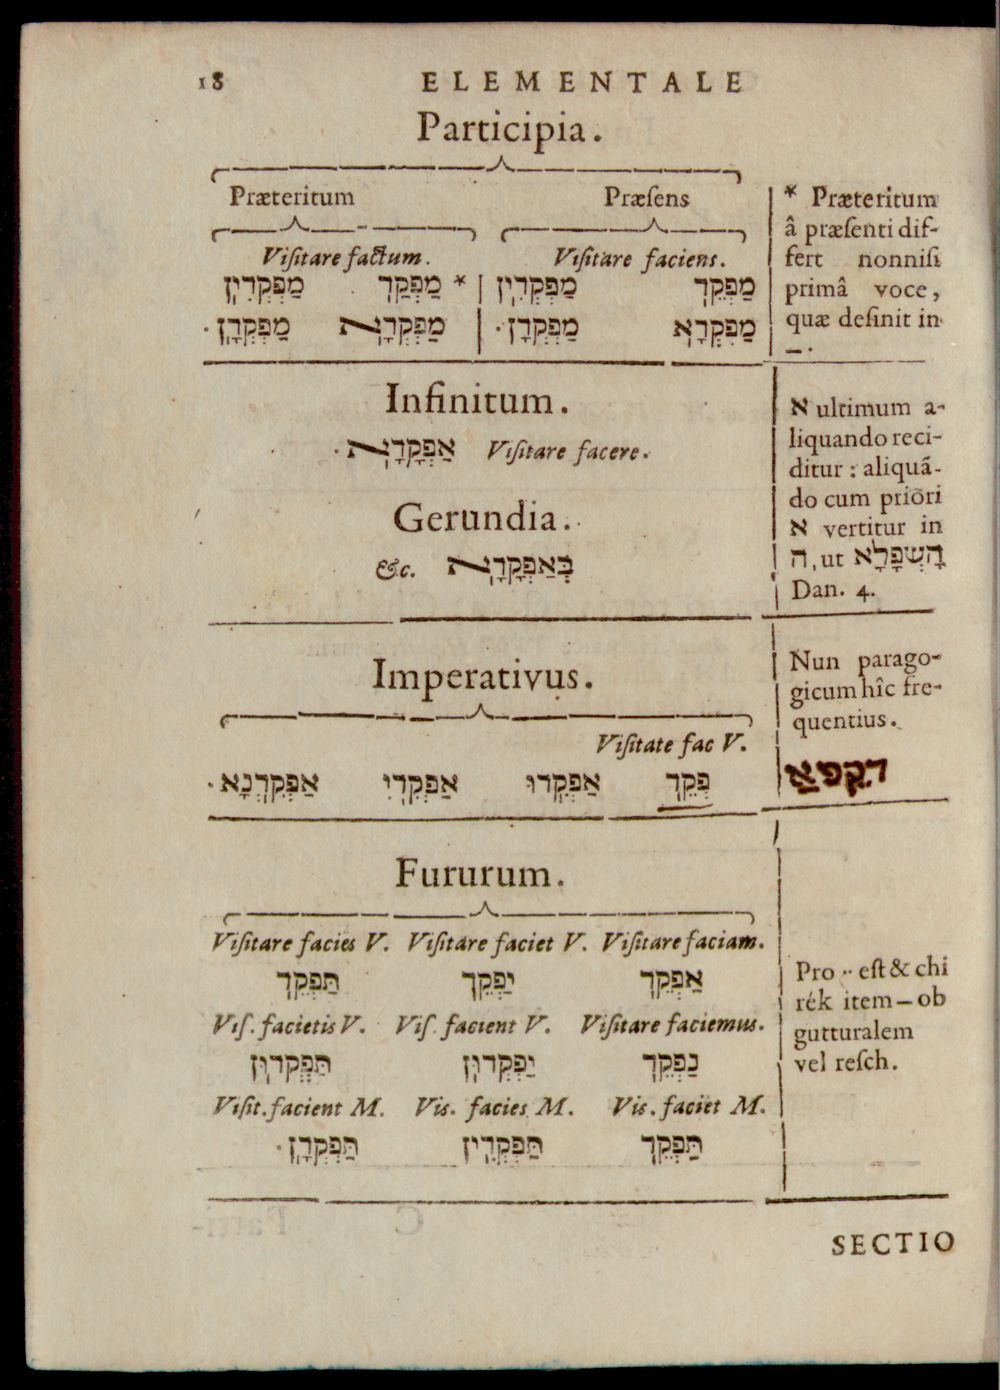 18 ELEMENTALE
Participia.
Præteritum Præſens
Viſitare factum. Viſitare faciens.
מַפְקֵד מַפְקְדִין * מַפְקַד מַפְקְדִין
מַפְקְדָא מַפְקְדָן מַפְקְדָא מַפְקְדָן
* Præteritum
â præſenti dif-
fert nonniſi
primâ voce,
quæ deſinit in
–.
Infinitum.
אַפְקָדָא Viſitare facere.
Gerundia.
בְּאַפְקָדָא &c.
א ultimum a-
liquando reci-
ditur : aliquã-
do cum priori
א vertitur in
ה, ut הָשְׁפָּלָא
Dan. 4.
Imperativus.
Viſitate fac V.
פְקֵד אַפְקֵדוּ אַפְקֵדִי אַפְקֵדְנָא
Nun parago-
gicum hîc fre-
quentius.
אַפְקֵד
Fururum.
Viſitare facies V. Viſitare faciet V. Viſitare faciam.
אַפְקֵד יַפְקֵד תַּפְקֵד
Viſ. facietis V. Viſ. facient V. Viſitare faciemus.
נַפְקֵד יַפְקְדוּן תַּפְקְדוּן
Viſit. facient M. Vis. facies M. Vis. faciet M.
תַּפְקֵד תַּפְקְדִין תַּפְקְדָן
Pro ·· eſt & chi
rék item – ob
gutturalem
vel reſch.
SECTIO